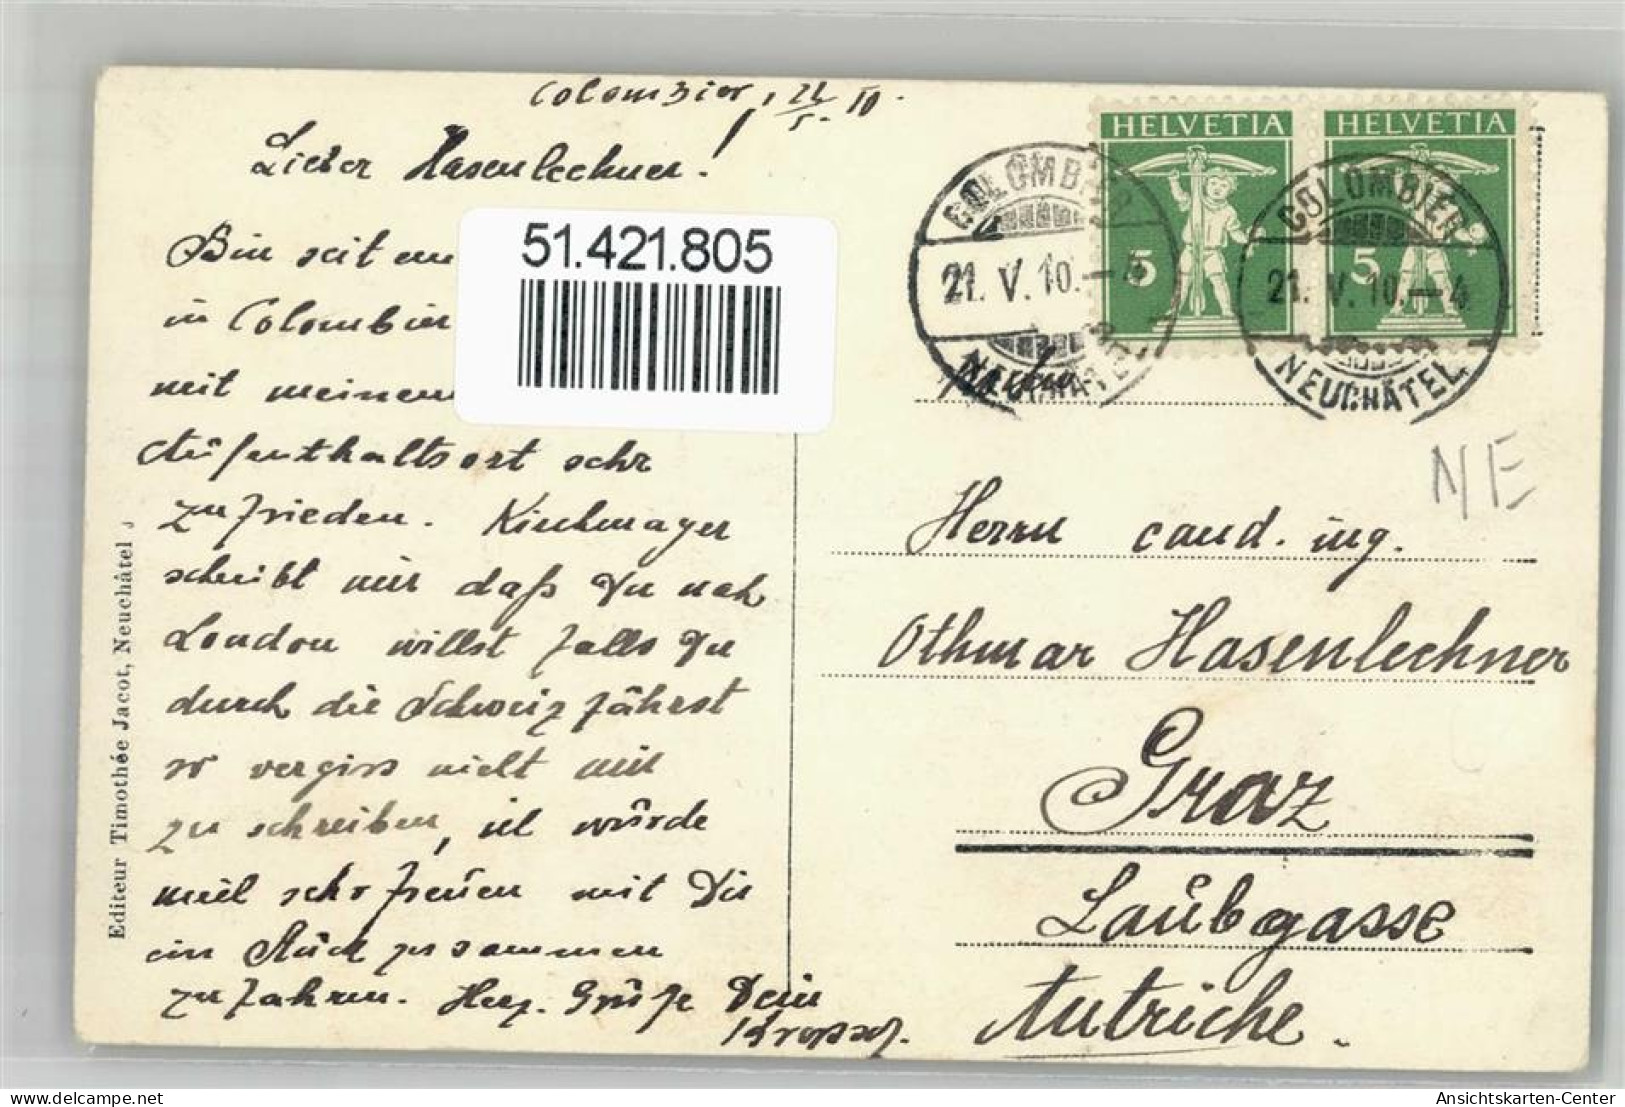 Colombier, 21/5. 10.
Lieber Hasenlechner!
Bin seit
in Colombier
mit meinem
Aufenthaltsort sehr
zufrieden. Kirchmayer
schreibt mir daß Du nach
London willst falls Du
durch die Schweiz fährst
so vergiss nicht mir
zu schreiben, ich würde
mich sehr freuen mit Dir
ein Stück zusammen
zu fahren. Herz. Grüße Dein
51.421.805
Editeur Timothée Jacot, Neuchâtel
HELVETIA
5
HELVETIA
5
COLOMBIER
21. V. 10.–4
NEUCHÂTEL
COLOMBIER
21. V. 10.–4
NEUCHÂTEL
NE
Herrn cand. ing.
Othmar Hasenlechner
Graz
Laubgasse
Autriche.
Ansichtskarten-Center